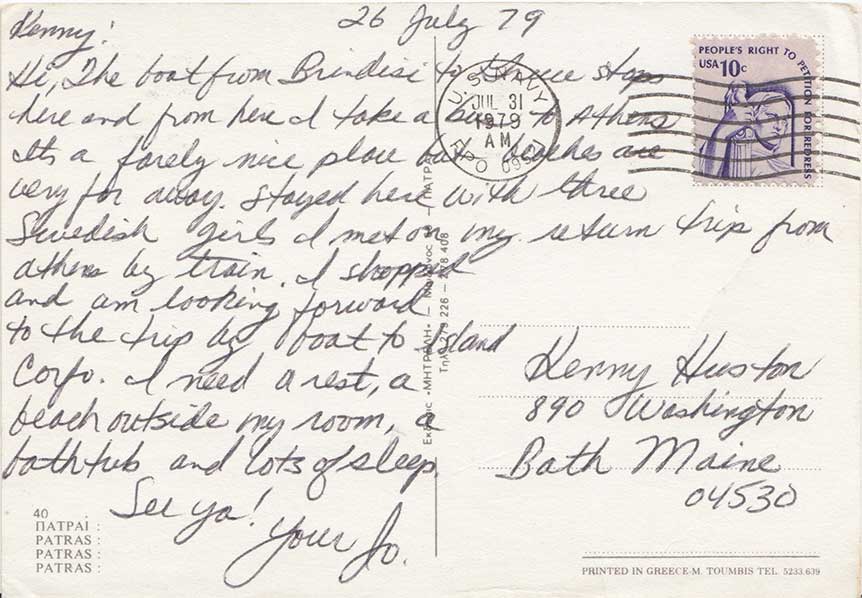 26 July 79
Kenny!
Hi, The boat from Brindisi to Greece stops
here and from here I take a bus to Athens
Its a farely nice place but beaches are
very far away. Stayed here with three
Swedish girls I met on my return trip from
athens by train. I shopped
and am looking forward
to the trip by boat to Island
Corfo. I need a rest, a
beach outside my room, a
bathtub and lots of sleep.
See ya!
Your Jo.
PEOPLE'S RIGHT TO PETITION FOR REDRESS
USA 10c
U.S. NAVY
JUL 31
1979
AM
Kenny Huston
890 Washington
Bath Maine
04530
40
ΠΑΤΡΑΙ :
PATRAS :
PATRAS :
PATRAS :
«ΜΗΤΡΟΠΟΛΗ» — ΠΑΤΡΑΙ
PRINTED IN GREECE-M. TOUMBIS TEL. 5233.639